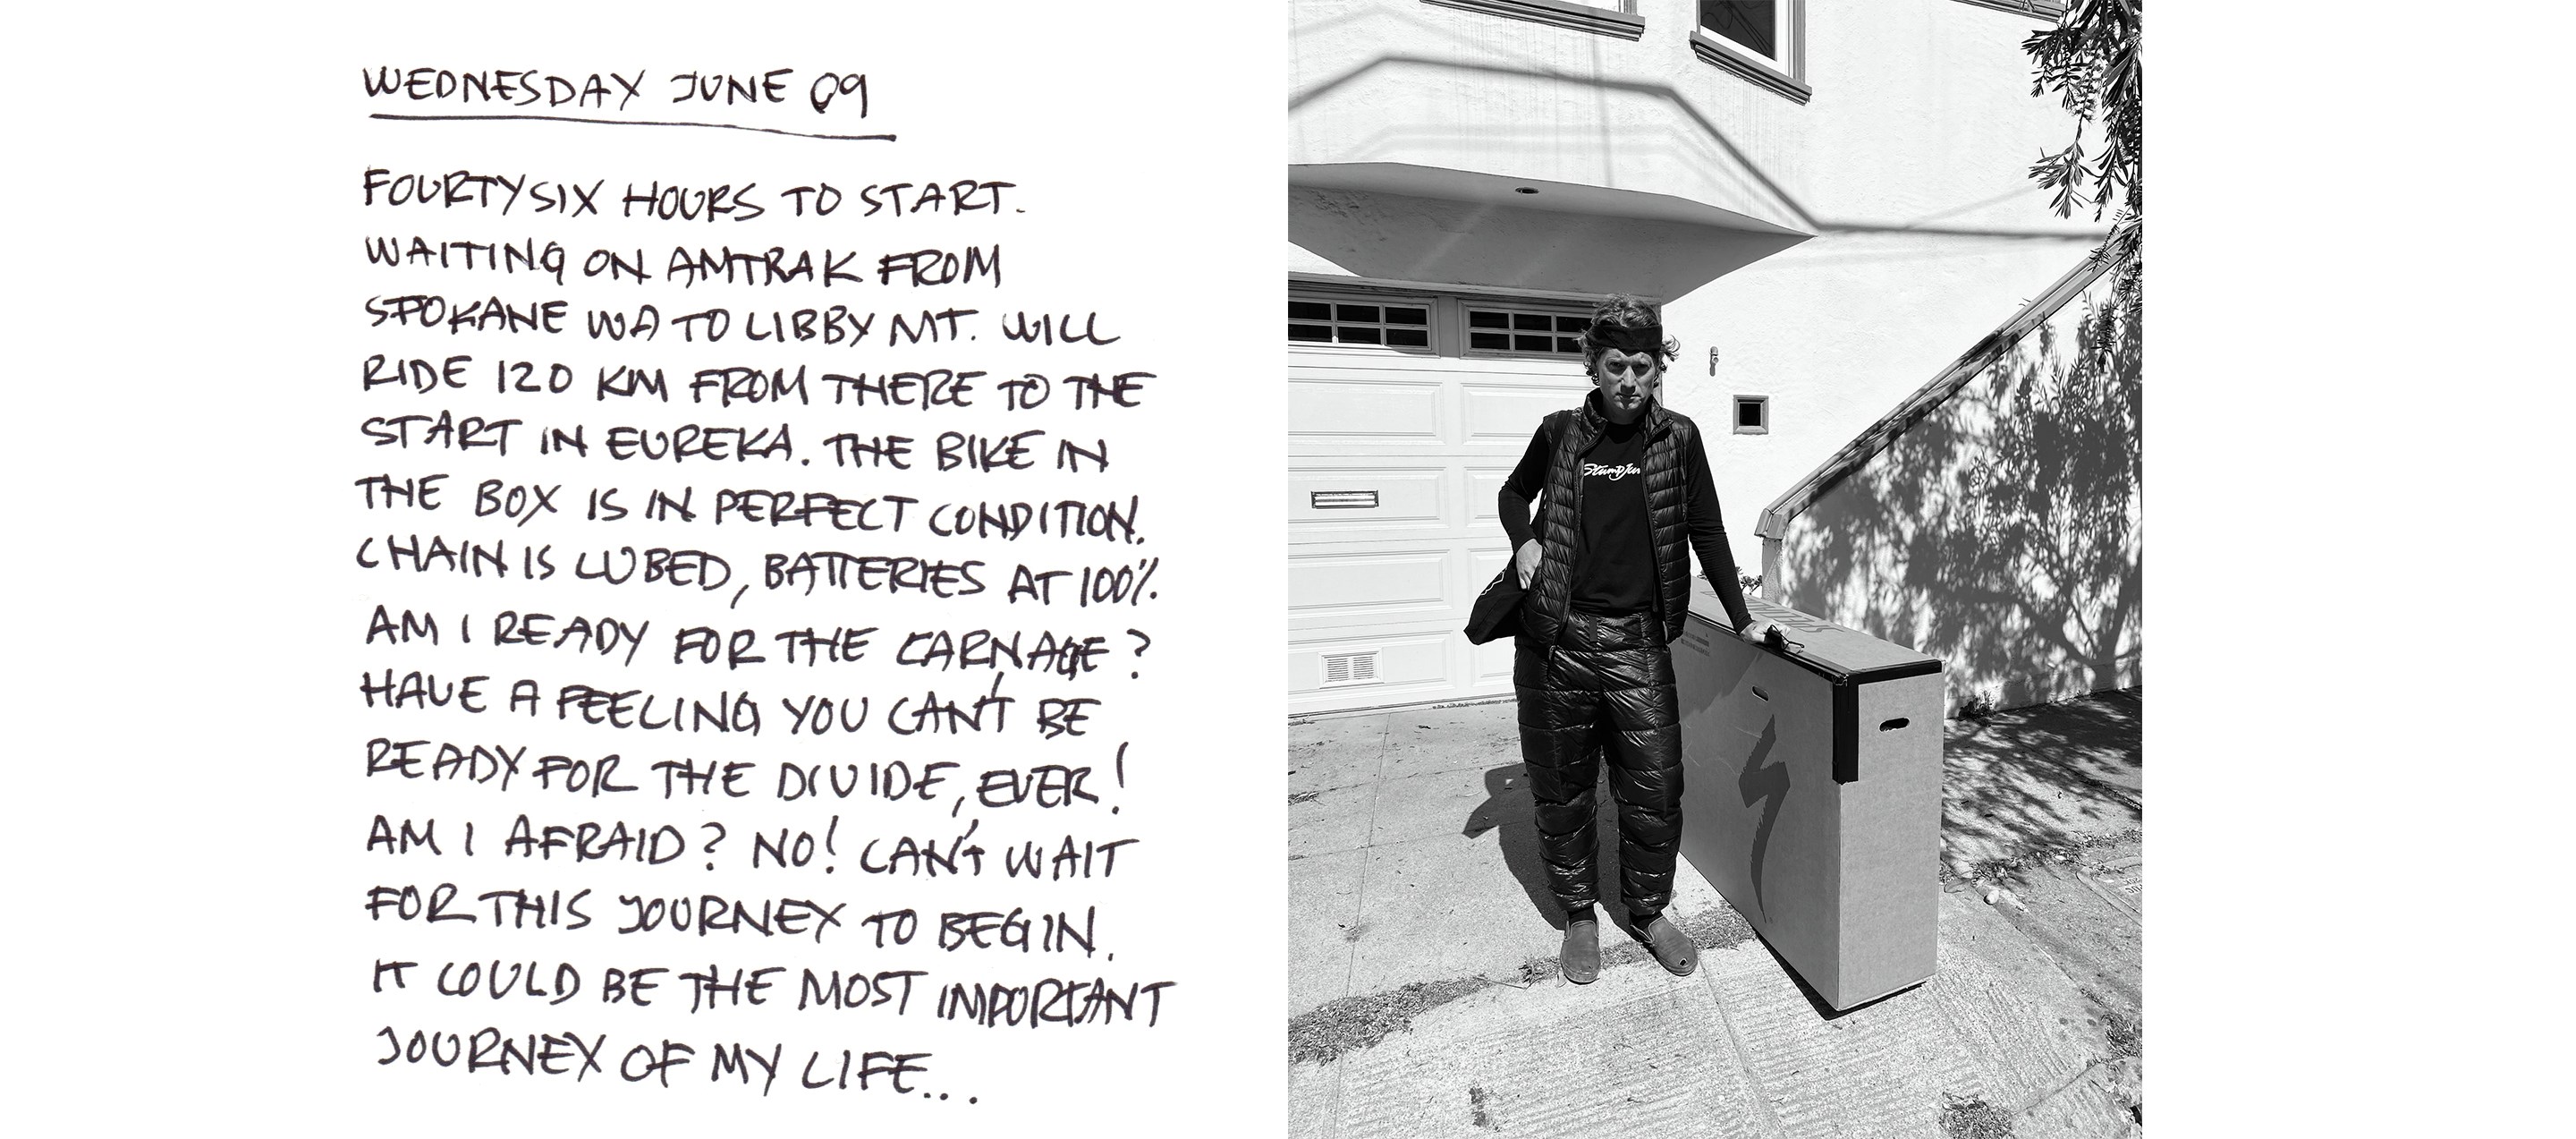 WEDNESDAY JUNE 09
FOURTYSIX HOURS TO START.
WAITING ON AMTRAK FROM
SPOKANE WA TO LIBBY MT. WILL
RIDE 120 KM FROM THERE TO THE
START IN EUREKA. THE BIKE IN
THE BOX IS IN PERFECT CONDITION.
CHAIN IS LUBED, BATTERIES AT 100%.
AM I READY FOR THE CARNAGE?
HAVE A FEELING YOU CAN'T BE
READY FOR THE DIVIDE, EVER!
AM I AFRAID? NO! CAN'T WAIT
FOR THIS JOURNEY TO BEGIN.
IT COULD BE THE MOST IMPORTANT
JOURNEY OF MY LIFE...